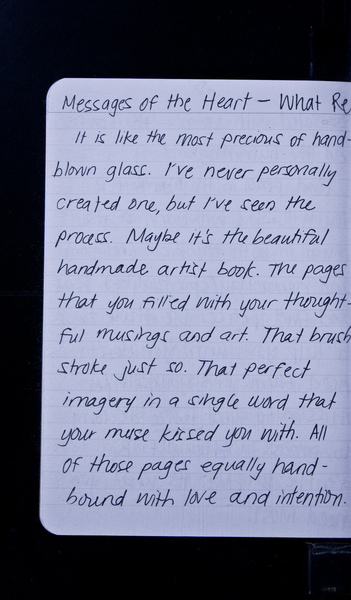 Messages of the Heart – What Re
It is like the most precious of hand-
blown glass. I've never personally
created one, but I've seen the
process. Maybe it's the beautiful
handmade artist book. The pages
that you filled with your thought-
ful musings and art. That brush
stroke just so. That perfect
imagery in a single word that
your muse kissed you with. All
of those pages equally hand-
bound with love and intention.